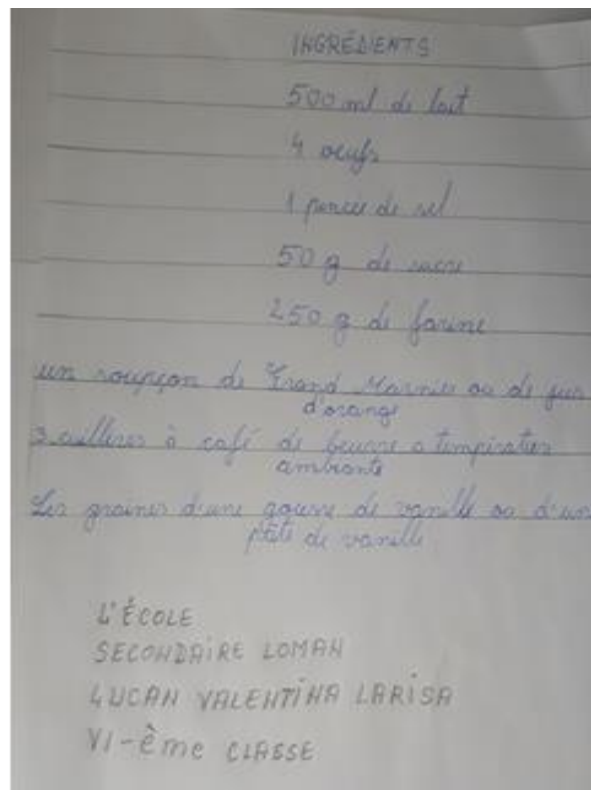 INGRÉDIENTS
500 ml de lait
4 oeufs
1 pincée de sel
50 g de sucre
250 g de farine
un soupçon de Grand Marnier ou de jus
d'orange
3 cuillères à café de beurre a température
ambiante
Les graines d'une gousse de vanille ou d'une
pâte de vanille
L'ÉCOLE
SECONDAIRE LOMAN
LUCAN VALENTINA LARISA
VI-ème CLASSE